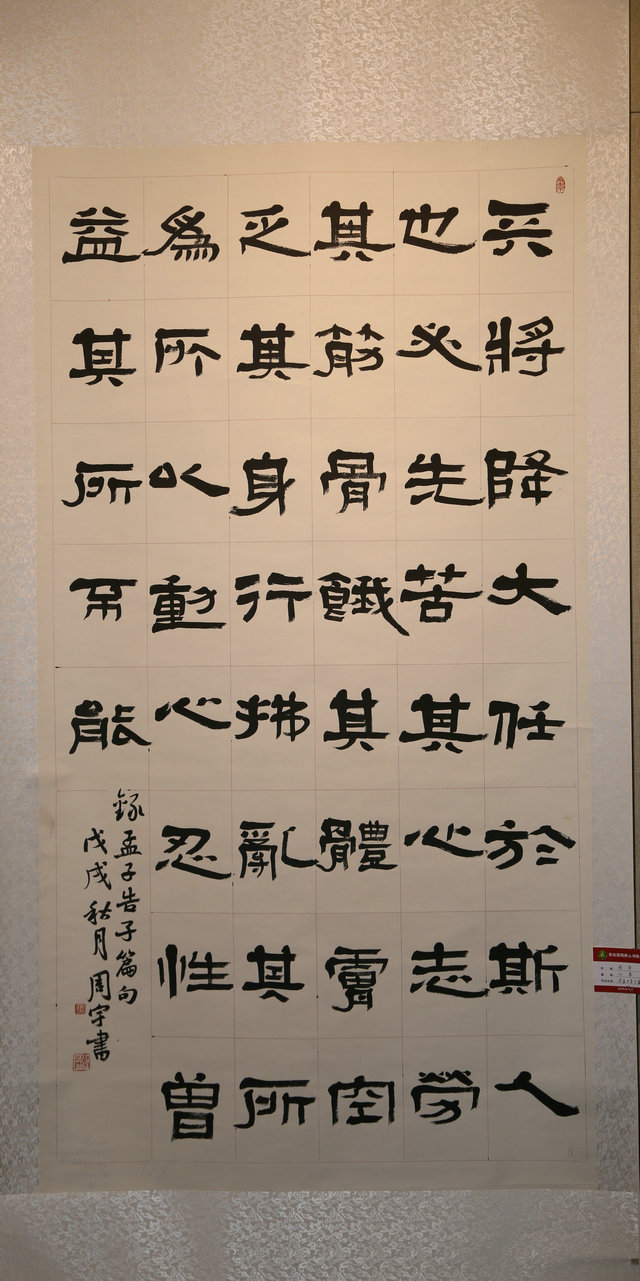 天將降大任於斯人
也必先苦其心志勞
其筋骨餓其體膚空
乏其身行拂亂其所
爲所以動心忍性曾
益其所不能
錄孟子告子篇句
戊戌秋月周宇書